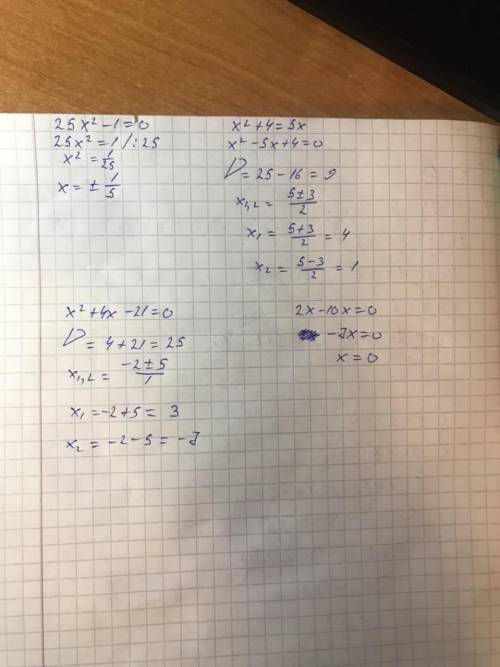 25x² - 1 = 0
25x² = 1 / : 25
x² = 1/25
x = ± 1/5
x² + 4 = 5x
x² - 5x + 4 = 0
D = 25 - 16 = 9
x₁,₂ = (5 ± 3)/2
x₁ = (5 + 3)/2 = 4
x₂ = (5 - 3)/2 = 1
x² + 4x - 21 = 0
D = 4 + 21 = 25
x₁,₂ = (-2 ± 5)/1
x₁ = -2 + 5 = 3
x₂ = -2 - 5 = -7
2x - 10x = 0
-7x = 0
x = 0